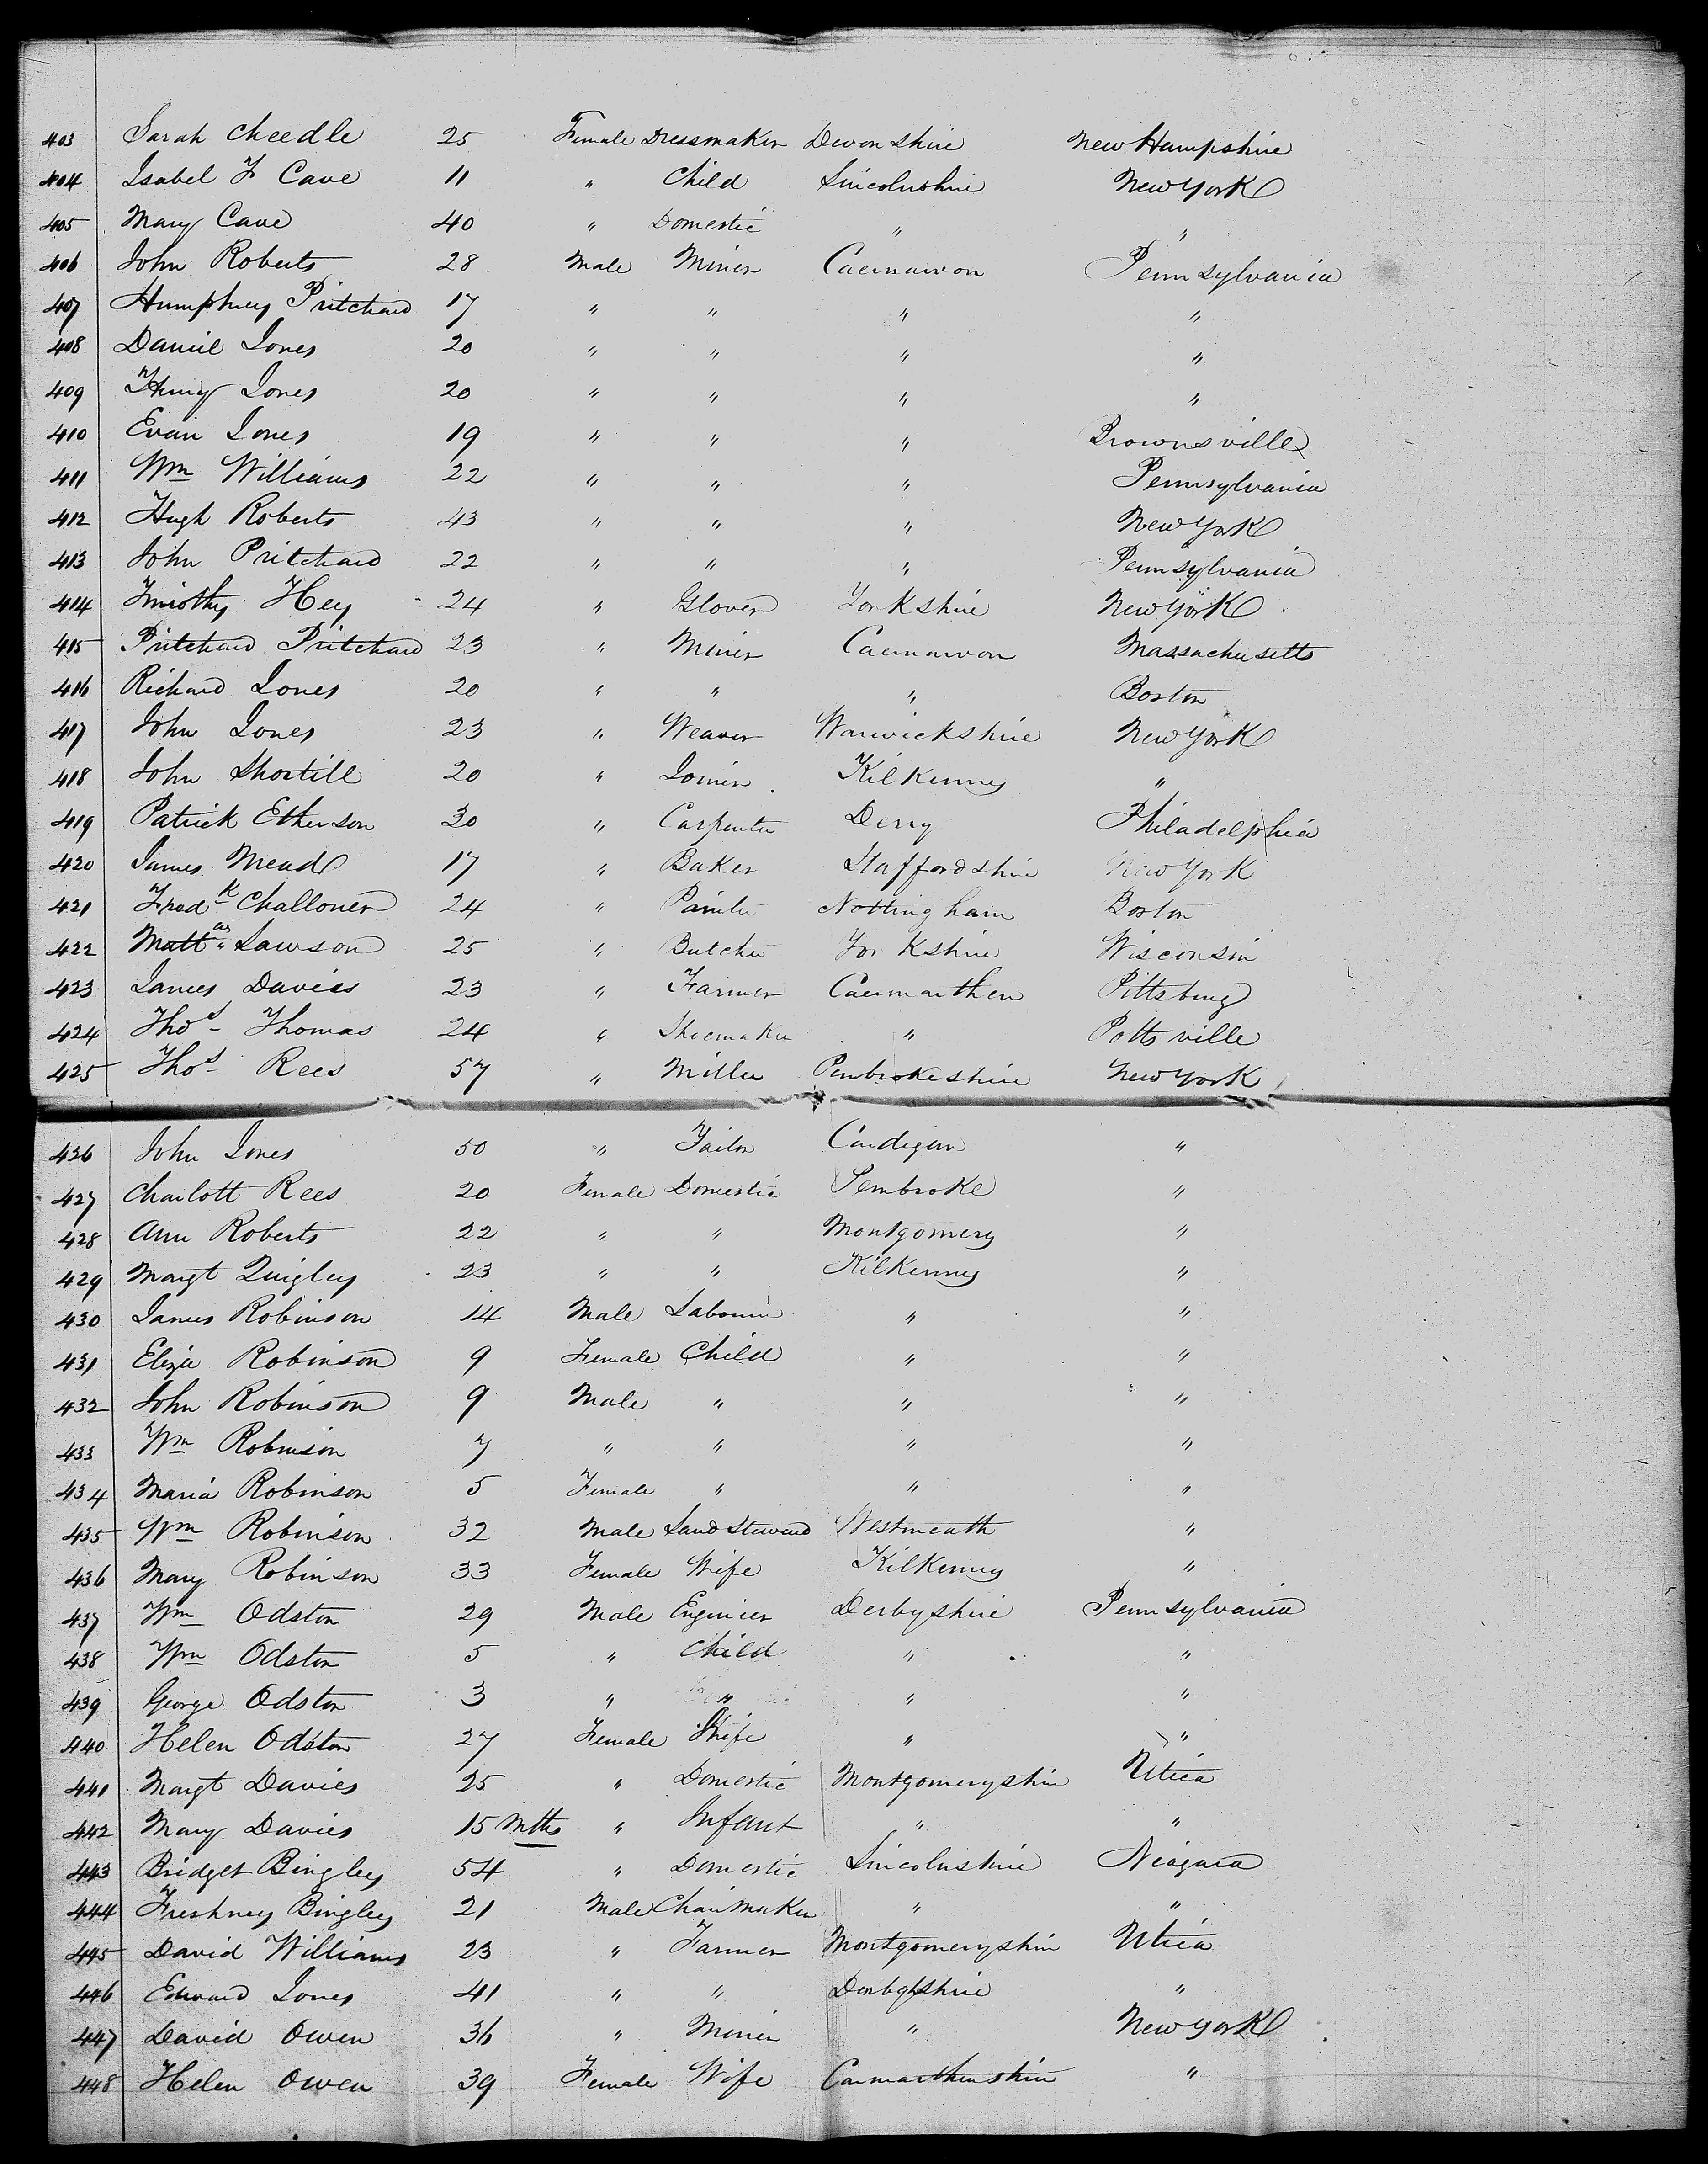 403 Sarah Cheedle 25 Female Dressmaker Devonshire New Hampshire
404 Isabel F Cave 11 " Child Lincolnshire New York
405 Mary Cave 40 " Domestic " "
406 John Roberts 28 Male Miner Caernarvon Pennsylvania
407 Humphrey Pritchard 17 " " " "
408 Daniel Jones 20 " " " "
409 Henry Jones 20 " " " "
410 Evan Jones 19 " " " Brownsville
411 Wm Williams 22 " " " Pennsylvania
412 Hugh Roberts 43 " " " New York
413 John Pritchard 22 " " " Pennsylvania
414 Timothy Hey 24 " Glover Yorkshire New York
415 Pritchard Pritchard 23 " Miner Caernarvon Massachusetts
416 Richard Jones 20 " " " Boston
417 John Jones 23 " Weaver Warwickshire New York
418 John Shortill 20 " Joiner Kilkenny "
419 Patrick Etherson 30 " Carpenter Derry Philadelphia
420 James Mead 17 " Baker Staffordshire New York
421 Fredk Challoner 24 " Painter Nottingham Boston
422 Mattas Lawson 25 " Butcher Yorkshire Wisconsin
423 James Davies 23 " Farmer Caermarthen Pittsburg
424 Thos Thomas 24 " Shoemaker " Pottsville
425 Thos Rees 57 " Miller Pembrokeshire New York
426 John Jones 50 " Tailor Cardigan "
427 Charlott Rees 20 Female Domestic Pembroke "
428 Ann Roberts 22 " " Montgomery "
429 Margt Quigley 23 " " Kilkenny "
430 James Robinson 14 Male Labourer " "
431 Eliza Robinson 9 Female Child " "
432 John Robinson 9 Male " " "
433 Wm Robinson 7 " " " "
434 Maria Robinson 5 Female " " "
435 Wm Robinson 32 Male Land Steward Westmeath "
436 Mary Robinson 33 Female Wife Kilkenny "
437 Wm Odston 29 Male Engineer Derbyshire Pennsylvania
438 Wm Odston 5 " Child " "
439 George Odston 3 " " " "
440 Helen Odston 27 Female Wife " "
441 Margt Davies 25 " Domestic Montgomeryshire Utica
442 Mary Davies 15 Mths " Infant " "
443 Bridget Bingley 54 " Domestic Lincolnshire Niagara
444 Freshney Bingley 21 Male Chairmaker " "
445 David Williams 23 " Farmer Montgomeryshire Utica
446 Edward Jones 41 " " Denbighshire "
447 David Owen 36 " Miner " New York
448 Helen Owen 39 Female Wife Carmarthenshire "